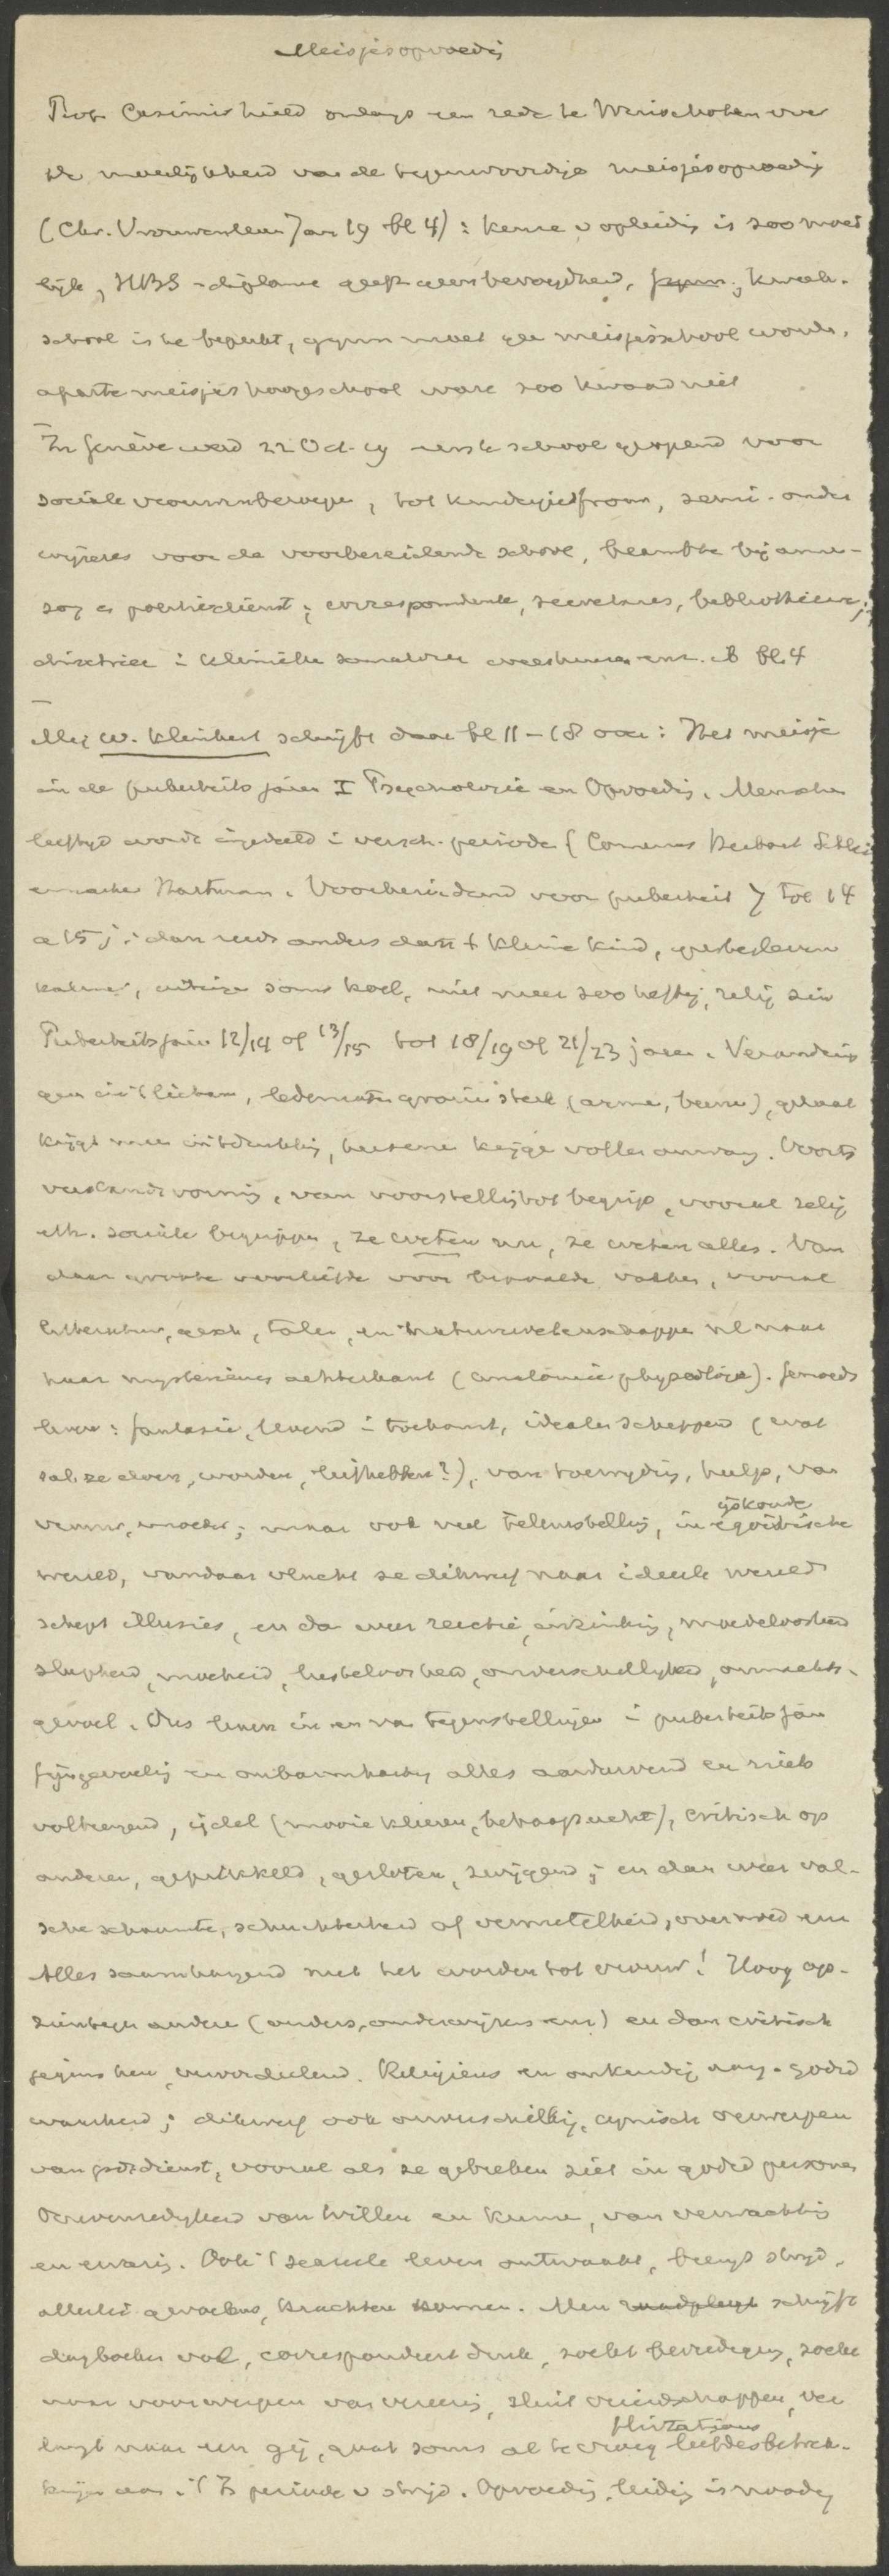 Meisjesopvoedig
Prof. Casimir hield onlangs een rede te Winschoten over
de moeilijkheid van de tegenwoordige meisjesopvoedig
(Chr. Vrouwenleven Jan 19 bl 4) : keuze v opleidig is zoo moei
lijk, HBS-diploma geeft geen bevoegdheid, kweek-
school is te beperkt, gymn moet geen meisjesschool worden,
aparte meisjeshoogeschool ware zoo kwaad niet
In Genève werd 22 Oct. 19 eerste school geopend voor
sociale vrouwenberoepen, tot onder
wijzeres voor de voorbereidende school, beambte bij armen-
zorg en politiedienst; correspondente, secretares, bibliothecar;
directrice i klinieken sanatoria weeshuizen enz. ib bl. 4
Mej W. Kleinbert schrijft daar bl 11-18 over: Het meisje
in de puberteits jaren I Psychologie en Opvoedig. Menschen
leeftijd wordt ingedeeld i versch. periode (Comenius Herbart Schlei
ermacher Hartman. Voorbereidend voor puberteit 7 tot 14
a 15 j: dan reeds anders dan 't kleine kind, geestesleven
kalmer, soms koel, niet meer zoo heftig, zelfs
Puberteitsjaren 12/14 of 13/15 tot 18/19 of 21/23 jaren. Verandering
gen in 't lichaam, ledematen groeien sterk (armen, beenen), gelaat
krijgt meer uitdrukkig, hersenen krijgen voller omvang. Voorts
verstandsvorming, van voorstelling tot begrip, vooral relig
eth. sociale begrippen, ze weten nu, ze weten alles. Van
daar groote voorliefde voor bepaalde vakken, vooral
litteratuur, gesch, talen, en natuurwetenschappen nl naar
haar mysterieuse achterkant (anatomie physiologie). Gemoeds
leven: fantasie, levend i toekomst, idealen scheppend (wat
zal ze doen, worden, liefhebben?), van toewijding, hulp, van
vrouw, moeder; maar ook veel teleurstellig, in ijskoude egoistische
wereld, vandaar vlucht ze dikwerf naar ideale wereld
schept illusies, en dan weer reactie, inzinking, moedeloosheid
slapheid, moeheid, lusteloosheid, onverschilligheid, onmachts-
gevoel. Dus leven in en van tegenstellingen i puberteitsjaren
fijngevoelig en onbarmhartig alles aandurvend en niets
volbrengend, ijdel (mooie kleeren, behaagzucht), critisch op
anderen, geprikkeld, gesloten, zwijgend; en dan weer val-
sche schaamte, schuchterheid of vermetelheid, overmoed enz
Alles saamhangend met het worden tot vrouw! Hoog op-
ziend tegen andere (ouders, onderwijzers enz) en dan critisch
jegens hen, veroordeelend. Religieus en godsd
waarheid; dikwerf ook onverschillig, cynisch verwerpen
van godsdienst, vooral als ze gebreken ziet in godsd personen
Onevenredigheid van willen en kunnen, van verwachting
en ervaring. Ook 't sexueele leven ontwaakt, brengt strijd,
allerlei gevoelens, krachten komen. Men schrijft
dagboeken vol, correspondeert druk, zoekt bevrediging, zoekt
naar voorwerpen van vereerig, sluit vriendschappen, ver
langt naar een gij, gaat soms al te vroeg flirtations liefdesbetrek-
kingen aan. 't Is periode v strijd. Opvoedig, leidig is noodig